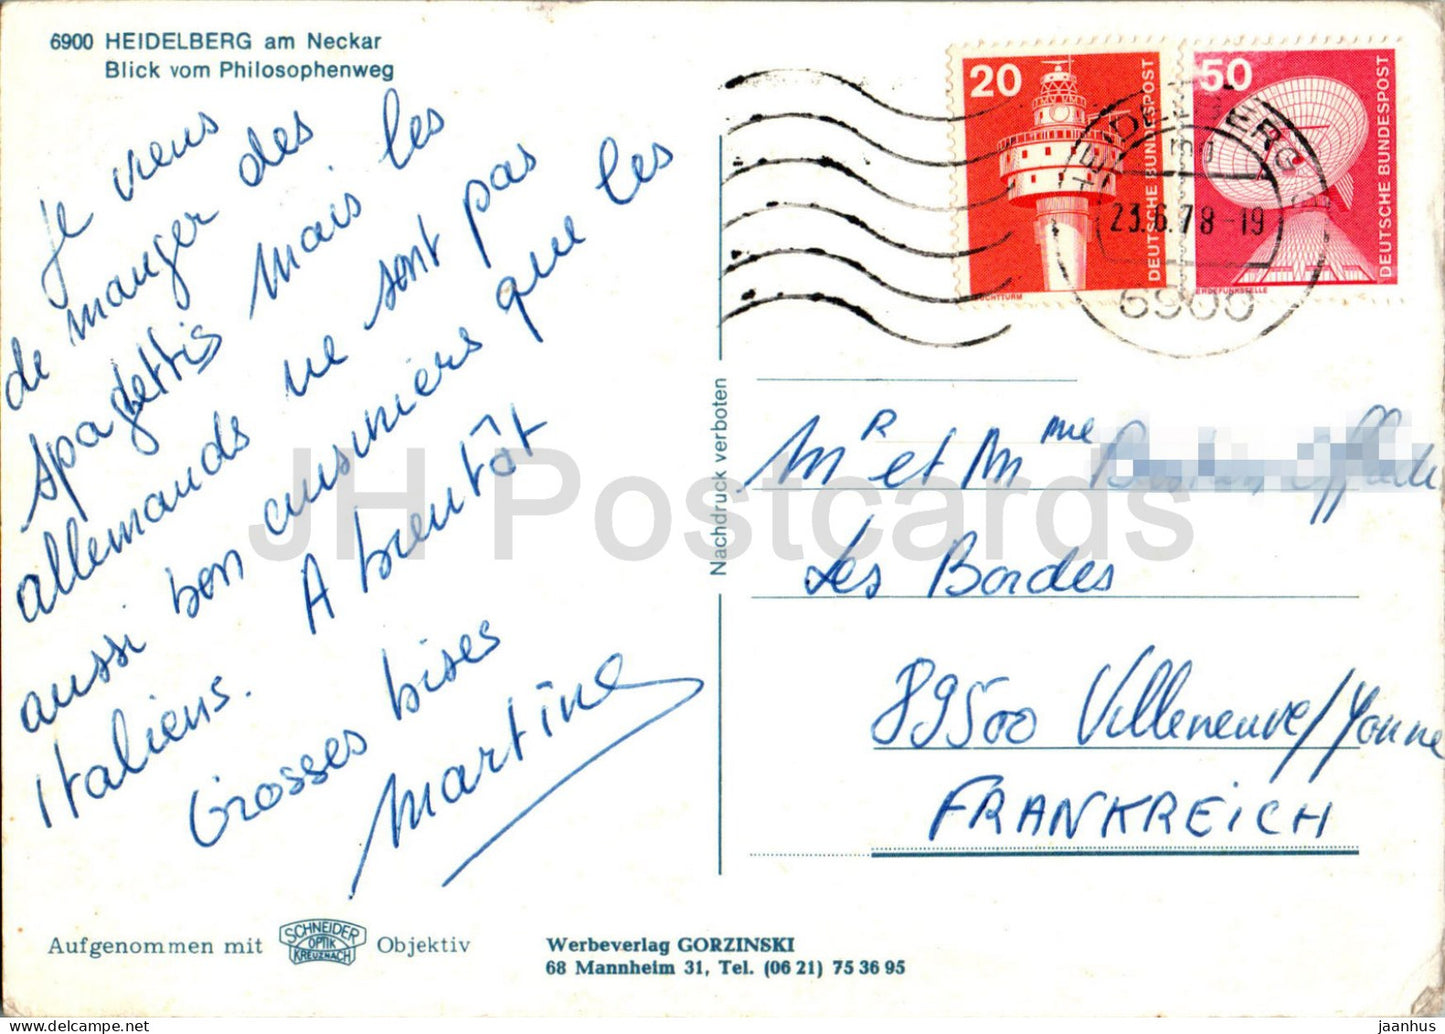 6900 HEIDELBERG am Neckar
Blick vom Philosophenweg
Je viens
de manger des
spaghettis mais les
allemands ne sont pas
aussi bon cuisiniers que les
Italiens. A bientôt
Grosses bises
Martine
Aufgenommen mit SCHNEIDER OPTIK KREUZNACH Objektiv
Werbeverlag GORZINSKI
68 Mannheim 31, Tel. (06 21) 75 36 95
Nachdruck verboten
20
DEUTSCHE BUNDESPOST
50
DEUTSCHE BUNDESPOST
ERDEFUNKSTELLE
HEIDELBERG
23.6.78-19
6900
Mr et Mme
Les Bordes
89500 Villeneuve/Yonne
FRANKREICH
JH Postcards
jaanhus - delcampe.net